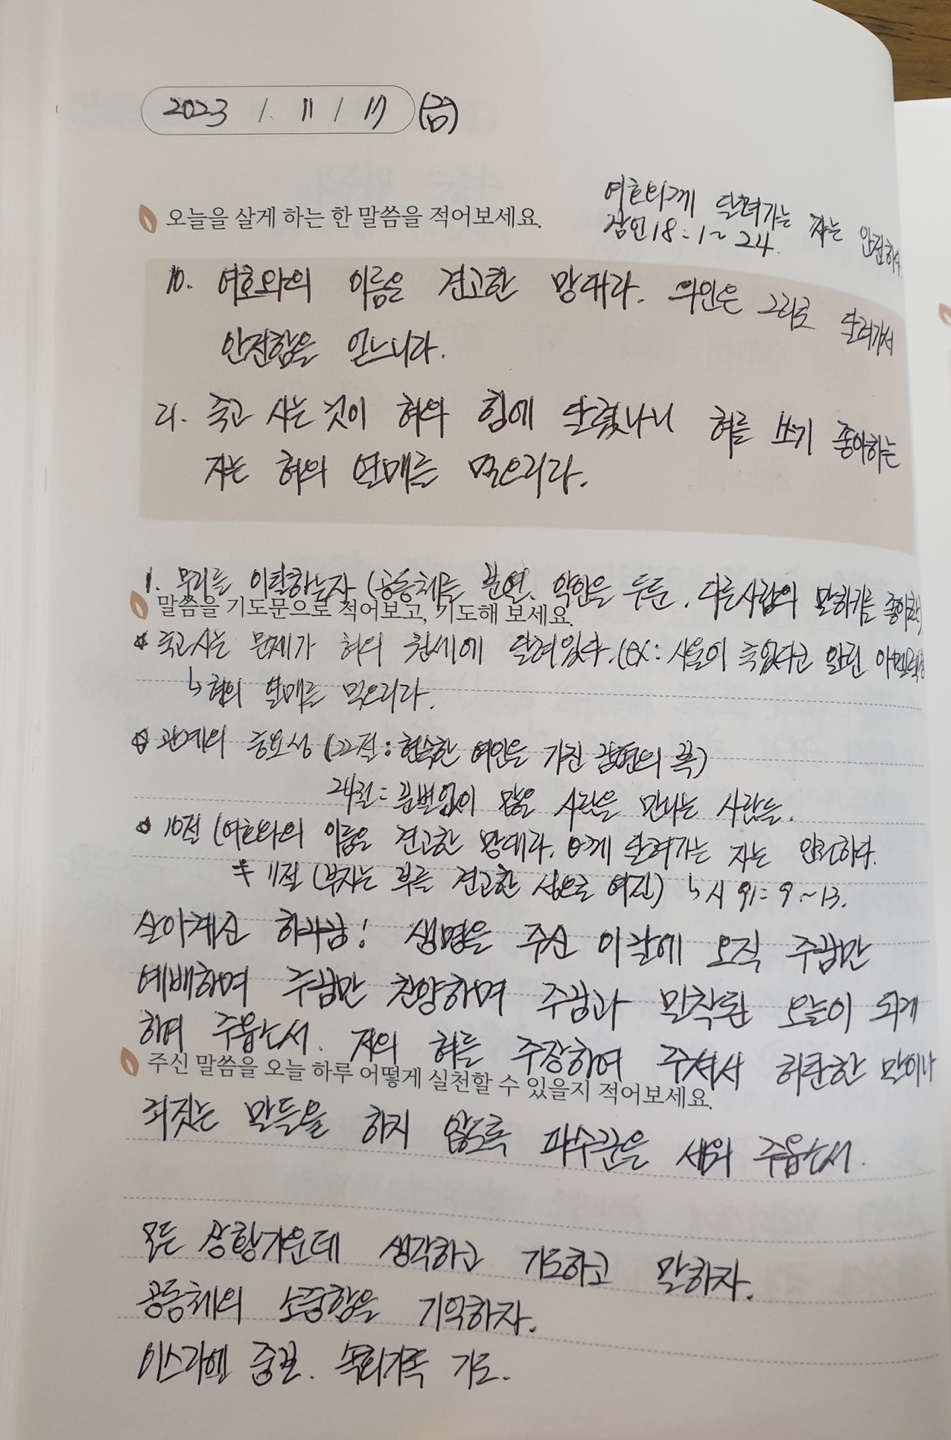 2023 / 11 / 17 (금)
여호와께 달려가는 자는 안전하다
잠언 18:1~24.
오늘을 살게 하는 한 말씀을 적어보세요.
10. 여호와의 이름은 견고한 망대라. 의인은 그리로 달려가서
안전함을 얻느니라.
21. 죽고 사는 것이 혀의 힘에 달렸나니 혀를 쓰기 좋아하는
자는 혀의 열매를 먹으리라.
1. 무리를 이탈하는자 (공동체를 분열, 악인을 두둔, 다른사람의 말하기를
말씀을 기도문으로 적어보고, 기도해 보세요.
죽고사는 문제가 혀의 권세에 달려있다. (ex: 사울이 죽었다고 알린
↳ 혀의 열매를 먹으리라.
관계의 중요성 (22절: 현숙한 여인을 가진 남편의 복)
24절: 분별없이 많은 사람을 만나는 사람들.
10절 (여호와의 이름은 견고한 망대라. 달려가는 자는 안전하다.
11절 (부자는 부를 견고한 성으로 여김) ↳ 시 91:9~13.
살아계신 하나님! 생명을 주신 이 날에 오직 주님만
예배하며 주님만 찬양하며 주님과 밀착된 오늘이 되게
하여 주옵소서. 저의 혀를 주장하여 주셔서 허탄한 말이나
주신 말씀을 오늘 하루 어떻게 실천할 수 있을지 적어보세요.
죄짓는 말들을 하지 않도록 파수꾼을 세워 주옵소서.
모든 상황가운데 생각하고 기도하고 말하자.
공동체의 소중함을 기억하자.
이스라엘 중보. 기도.